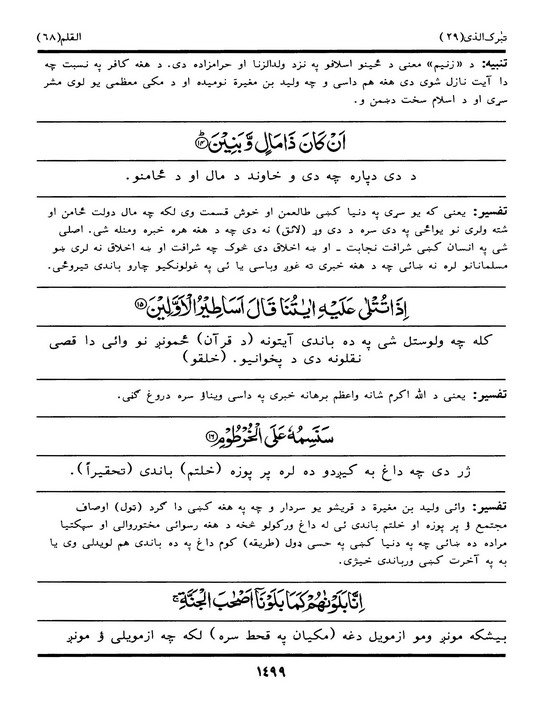 تبٰرک الذی (٢٩)
القلم (٦٨)
تنبیه: د «زنیم» معنی د ځینو اسلافو په نزد ولدالزنا او حرامزاده دی. د هغه کافر په نسبت چه
دا آیت نازل شوی دی هغه هم داسی و چه ولید بن مغیرة نومیده او د مکی معظمی یو لوی مشر
سړی او د اسلام سخت دښمن و.
اَنۡ كَانَ ذَا مَالٍ وَّبَنِیۡنَ ﴿۱۴﴾
د دی دپاره چه دی و خاوند د مال او د ځامنو.
تفسیر: یعنی که یو سړی په دنیا کښی طالعمن او خوش قسمت وی لکه چه مال دولت ځامن او
شته ولری نو یواځی په دی سره د دی وړ (لائق) نه دی چه د هغه هره خبره ومنله شی. اصلی
شی په انسان کښی شرافت نجابت ـ او ښه اخلاق دی څوک چه شرافت او ښه اخلاق نه لری ښو
مسلمانانو لره نه ښائی چه د هغه خبری ته غوږ وباسی یا ئی په غولونکیو چارو باندی تیروځی.
اِذَا تُتۡلٰی عَلَیۡهِ اٰیٰتُنَا قَالَ اَسَاطِیۡرُ الۡاَوَّلِیۡنَ ﴿۱۵﴾
کله چه ولوستل شی په ده باندی آیتونه (د قرآن) ځمونږ نو وائی دا قصی
نقلونه دی د پخوانیو. (خلقو)
تفسیر: یعنی د الله اکرم شانه واعظم برهانه خبری په داسی ویناؤ سره دروغ ګڼی.
سَنَسِمُهٗ عَلَی الۡخُرۡطُوۡمِ ﴿۱۶﴾
ژر دی چه داغ به کیږدو ده لره پر پوزه (خلتم) باندی (تحقیراً).
تفسیر: وائی ولید بن مغیرة د قریشو یو سردار و چه په هغه کښی دا ګرد (ټول) اوصاف
مجتمع ؤ پر پوزه او خلتم باندی ئی له داغ ورکولو څخه د هغه رسوائی مختوروالی او سپکتیا
مراده ده ښائی چه په دنیا کښی په حسی ډول (طریقه) کوم داغ په ده باندی هم لویدلی وی یا
به په آخرت کښی ورباندی خیژی.
اِنَّا بَلَوۡنٰهُمۡ كَمَا بَلَوۡنَاۤ اَصۡحٰبَ الۡجَنَّةِ ۚ
بیشکه مونږ ومو ازمویل دغه (مکیان په قحط سره) لکه چه ازمویلی ؤ مونږ
١٤٩٩